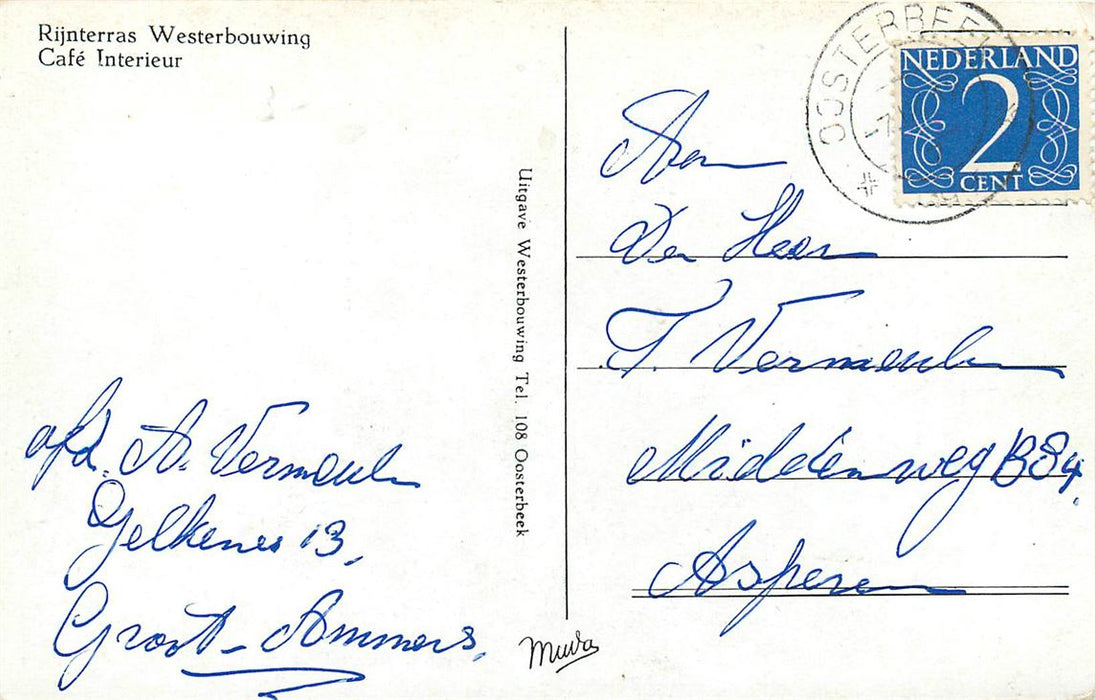 Rijnterras Westerbouwing
Café Interieur
OOSTERBEEK
NEDERLAND
2
CENT
Aan
Den Heer
T. Vermeulen
Middenweg B84.
Asperen
Uitgave Westerbouwing Tel. 108 Oosterbeek
afd. A. Vermeulen
Gelkenes 13,
Groot-Ammers.
Muva